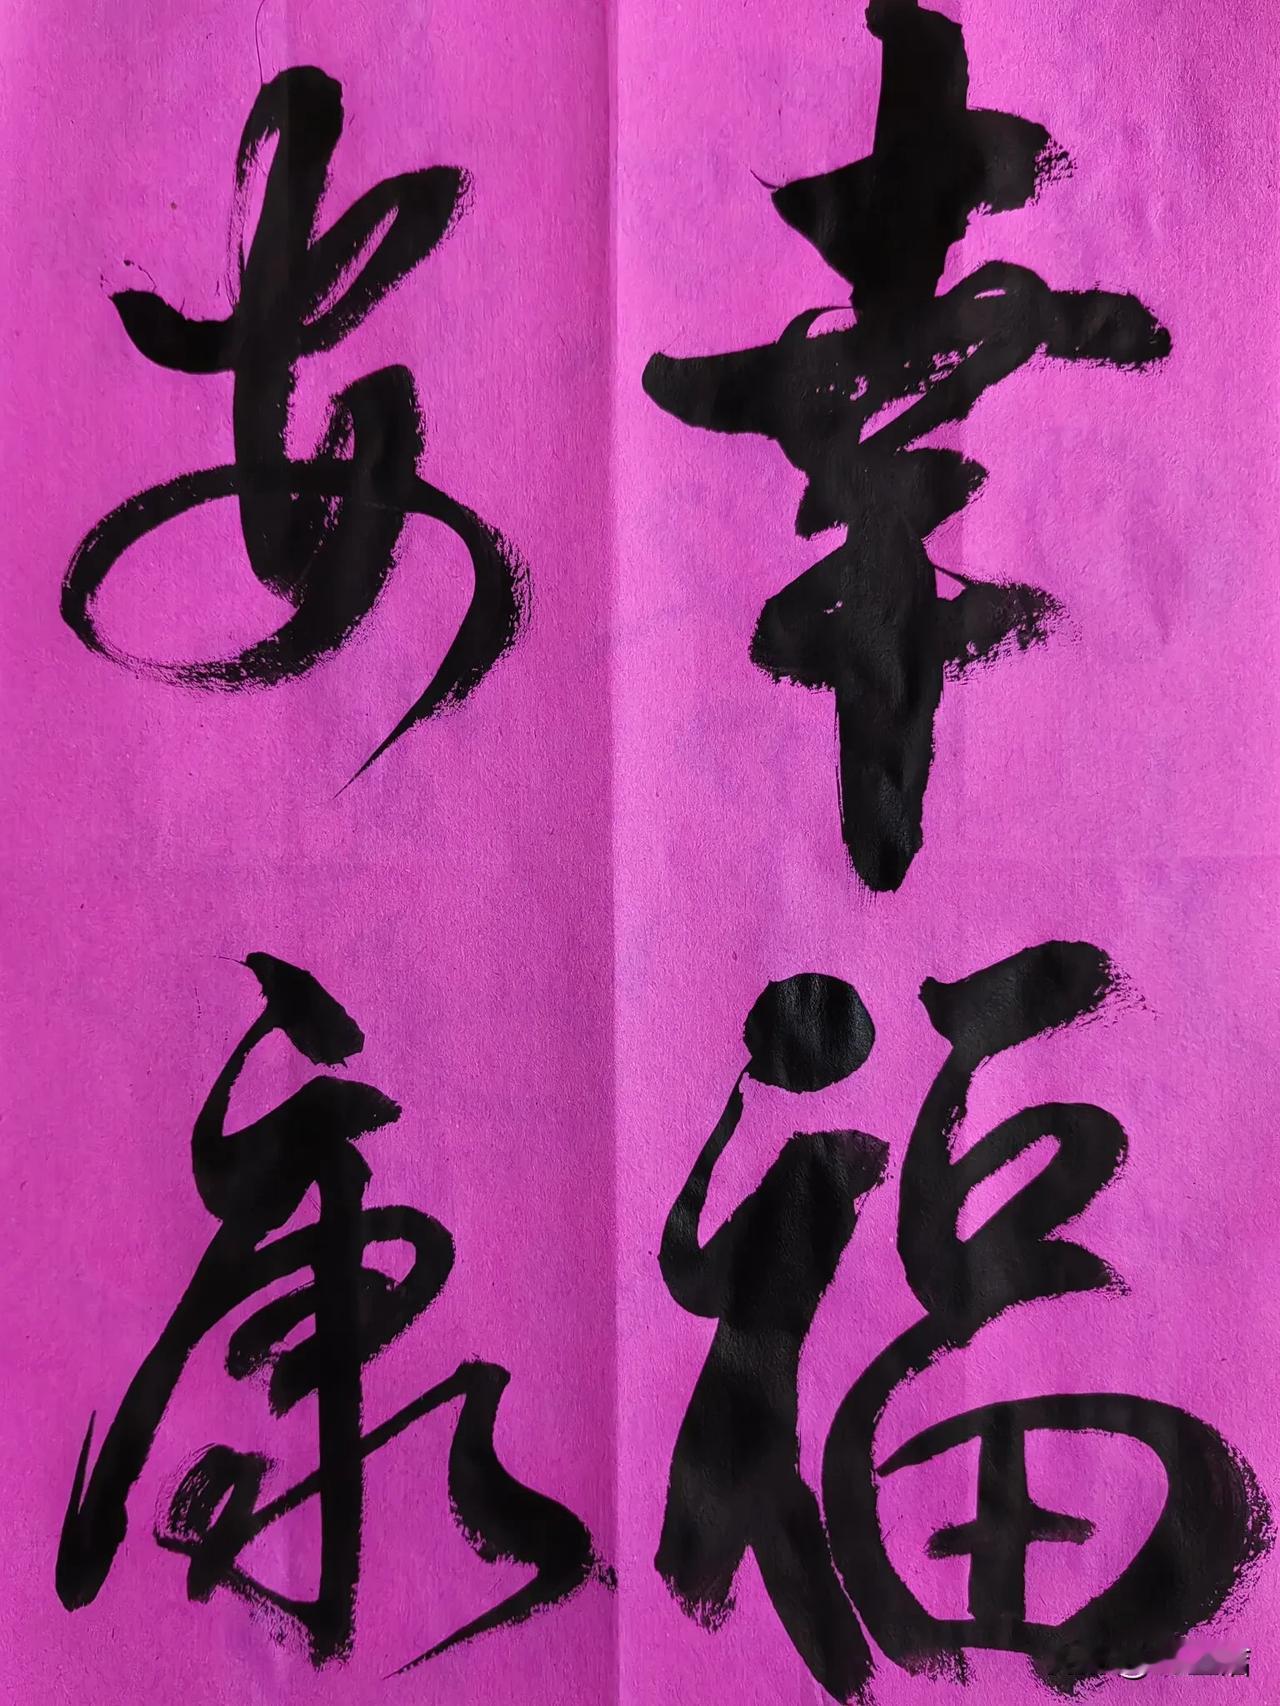 幸福
安康